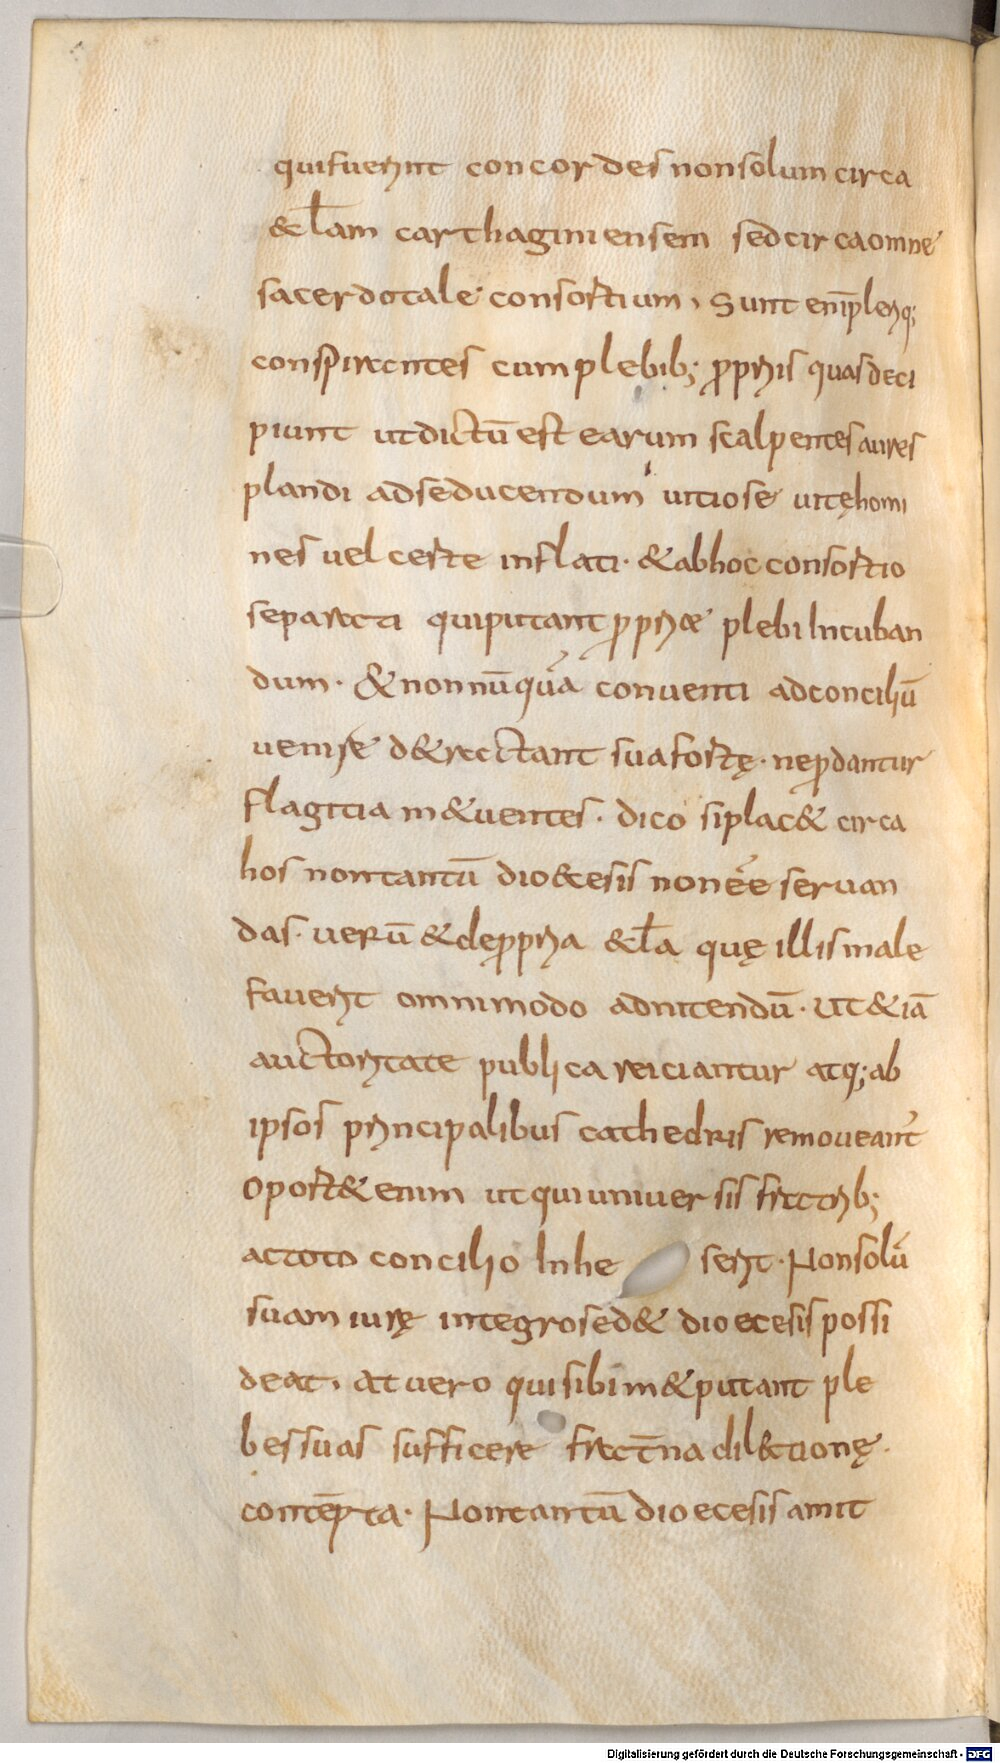 quifuerint concordes nonsolum circa
&cl̄am carthaginiensem sedcircaomne
sacerdotale consortium, Sunt eni᷒pleriq;
conspirantes cumplebib; ꝓpriis quasdeci
piunt utdictū est earum scalpentes aures
plandi adseducendum uitiose uitęhomi
nes uel certe inflati· &abhoc consortio
separati quiputant ꝓpriae plebi Incuban
dum· & nonnūquā conuenti adconciliū
uenire d&rectant sua fortę· neꝓdantur
flagitia m&uentes· dico siplac& circa
hos nontantū dioecesis non eē seruan
das· uerū &deꝓpria &cl̄a quę illis male
fauerit omnimodo adnitendū· ut&iā
auctoritate publica reiciantur atq; ab
ipsos principalibus cathedris remoueant̄
Oport& enim ut quiuniuersis fratrib;
actoto concilio Inhe serit· Nonsolū
suam iurę integrosed& dioecesis possi
deat, at uero quisibi m&putant ple
bes suas sufficere frat̄na dil&tionę·
contēpta· Nontantū dioecesis amit
Digitalisierung gefördert durch die Deutsche Forschungsgemeinschaft - DFG